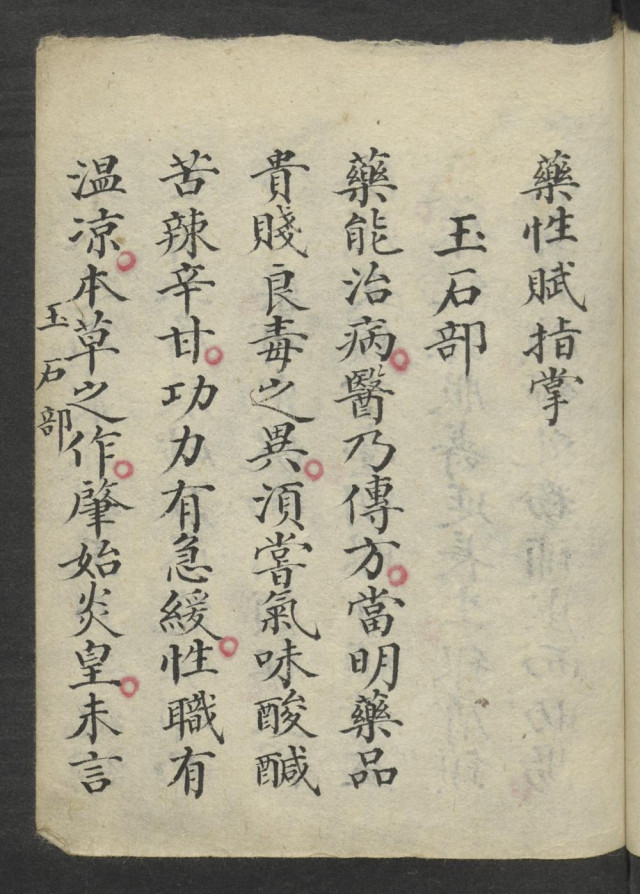 藥性賦指掌
玉石部
藥能治病醫乃傳方當明藥品
貴賤良毒之異須嘗氣味酸鹹
苦辣辛甘功力有急緩性職有
温凉本草之作肇始炎皇未言
玉石部